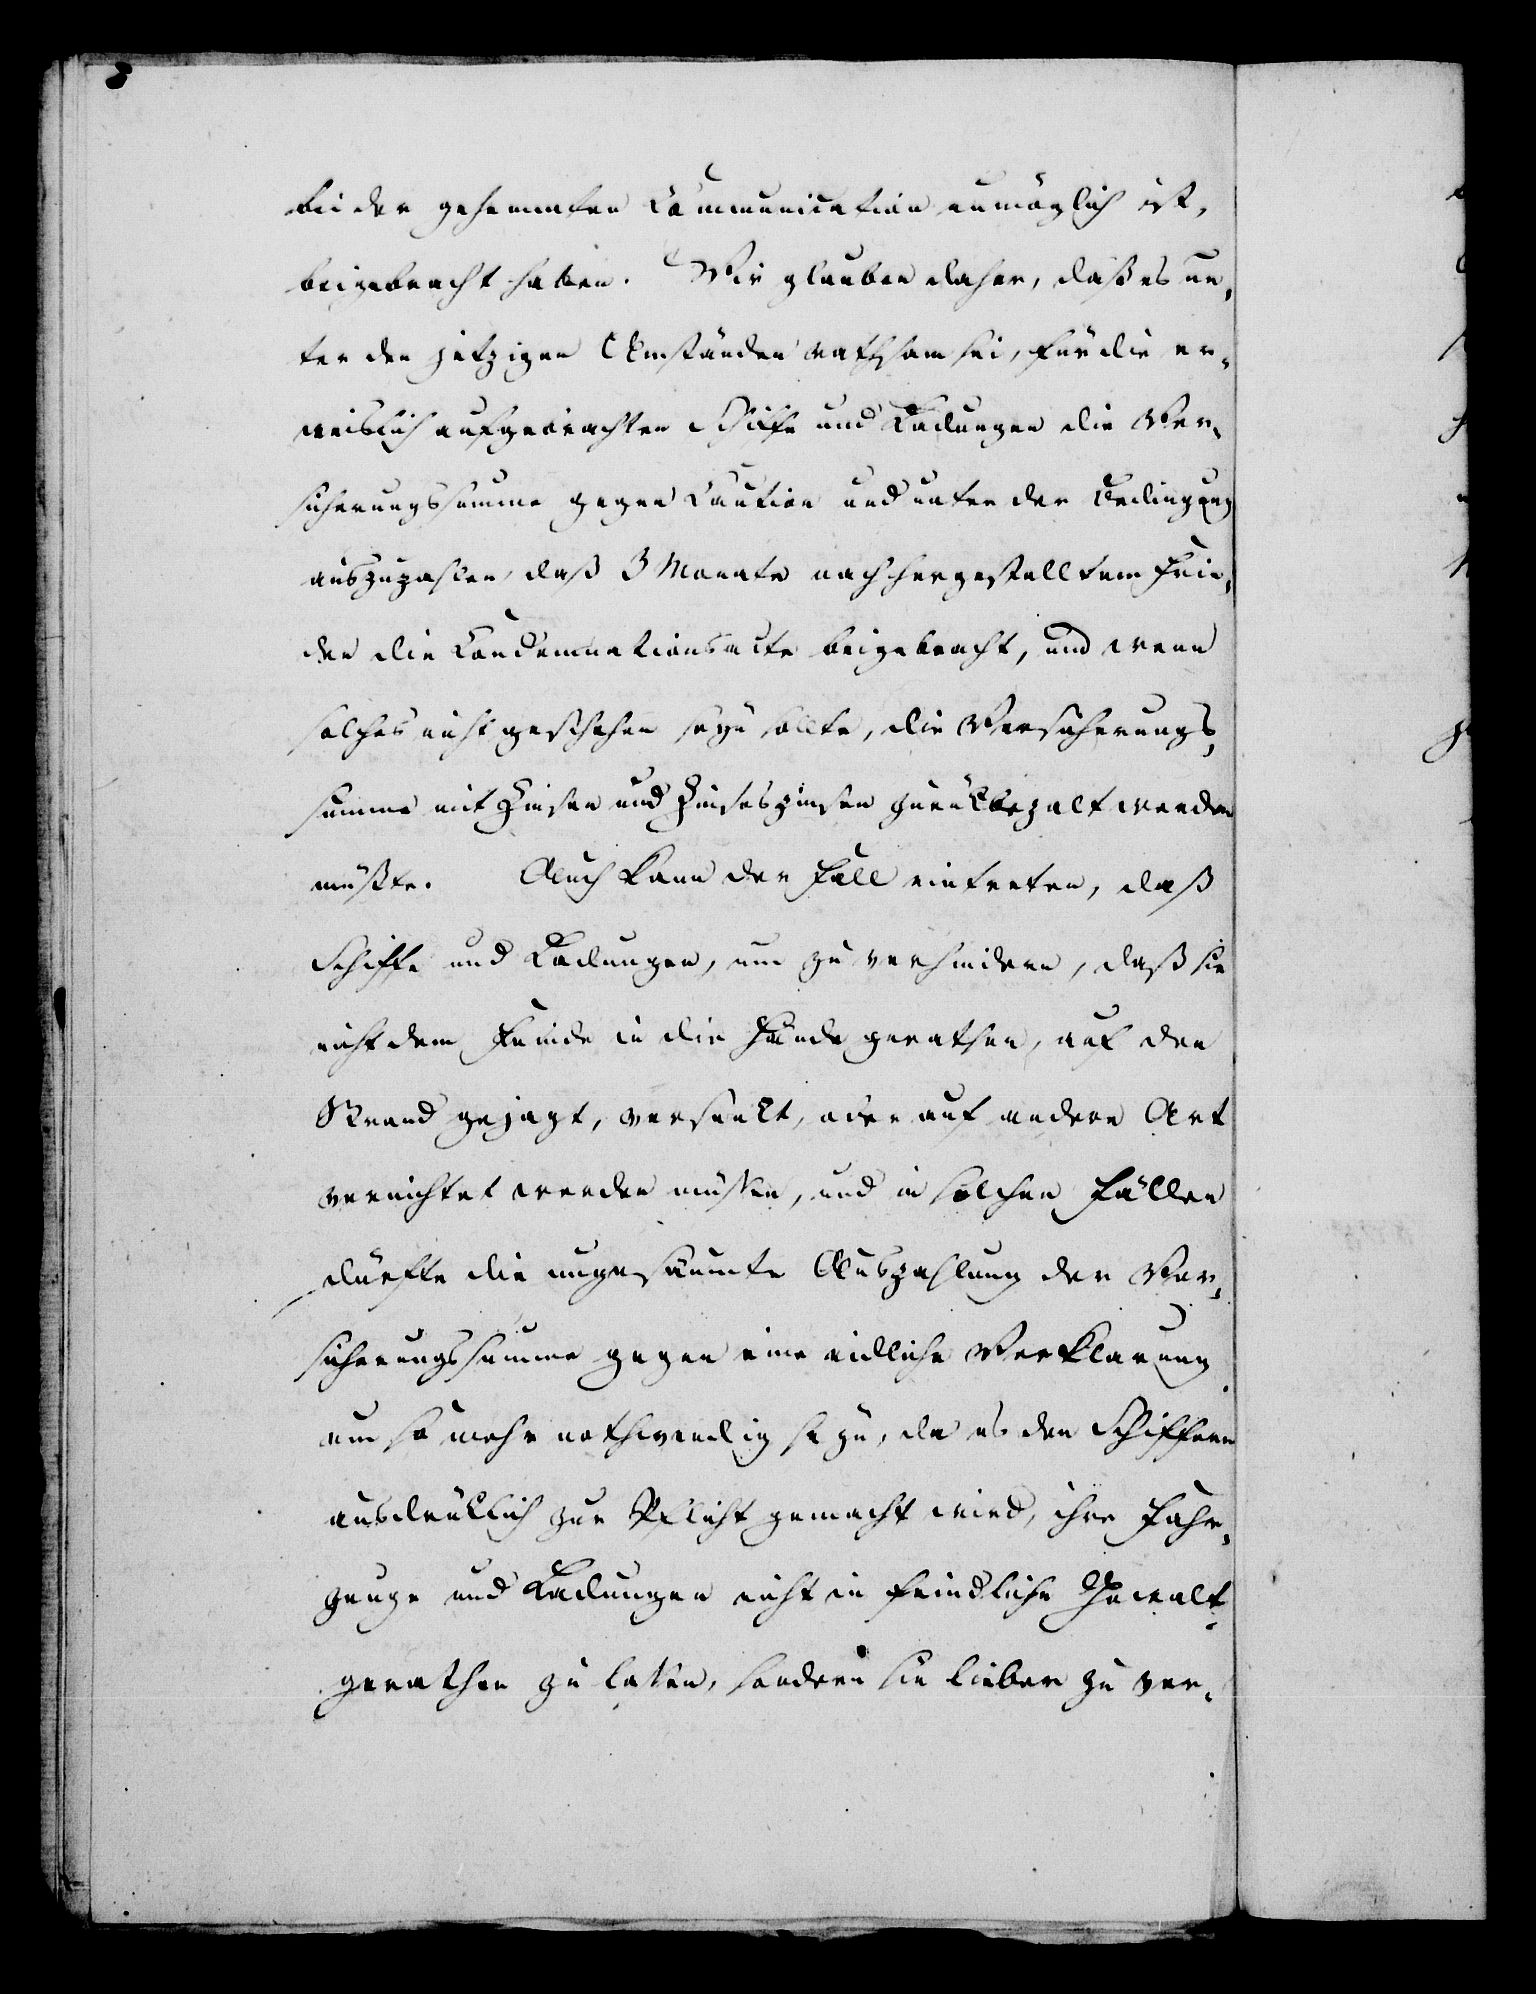 bei der gehemmten Communication unmöglich ist,
beigebracht haben. Wir glauben daher, daß es un-
ter den jetzigen Umständen rathsam sei, für die er-
weislich aufgebrachten Schiffe und Ladungen die Ver-
sicherungssumme gegen Caution und unter der Bedingung
auszuzahlen, daß 3 Monate nach hergestelltem Frie-
den die Condemnationsacte beigebracht, und wenn
solches nicht geschehen seyn sollte, die Versicherungs-
summe mit Zinsen und Zinseszinsen zurükbezalt werden
müßte. Auch kann der Fall eintreten, daß
Schiffe und Ladungen, um zu verhindern, daß sie
nicht dem Feinde in die Hände gerathen, auf den
Strand gejagt, versenkt, oder auf andere Art
vernichtet werden müssen, und in solchen Fällen
dürfte die ungesäumte Auszahlung der Ver-
sicherungssumme gegen eine eidliche Verklarung
um so mehr nothwendig seyn, da es den Schiffern
ausdrüklich zur Pflicht gemacht wird, ihre Fahr-
zeuge und Ladungen nicht in feindliche Gewalt
gerathen zu lassen, sondern sie lieber zu ver-